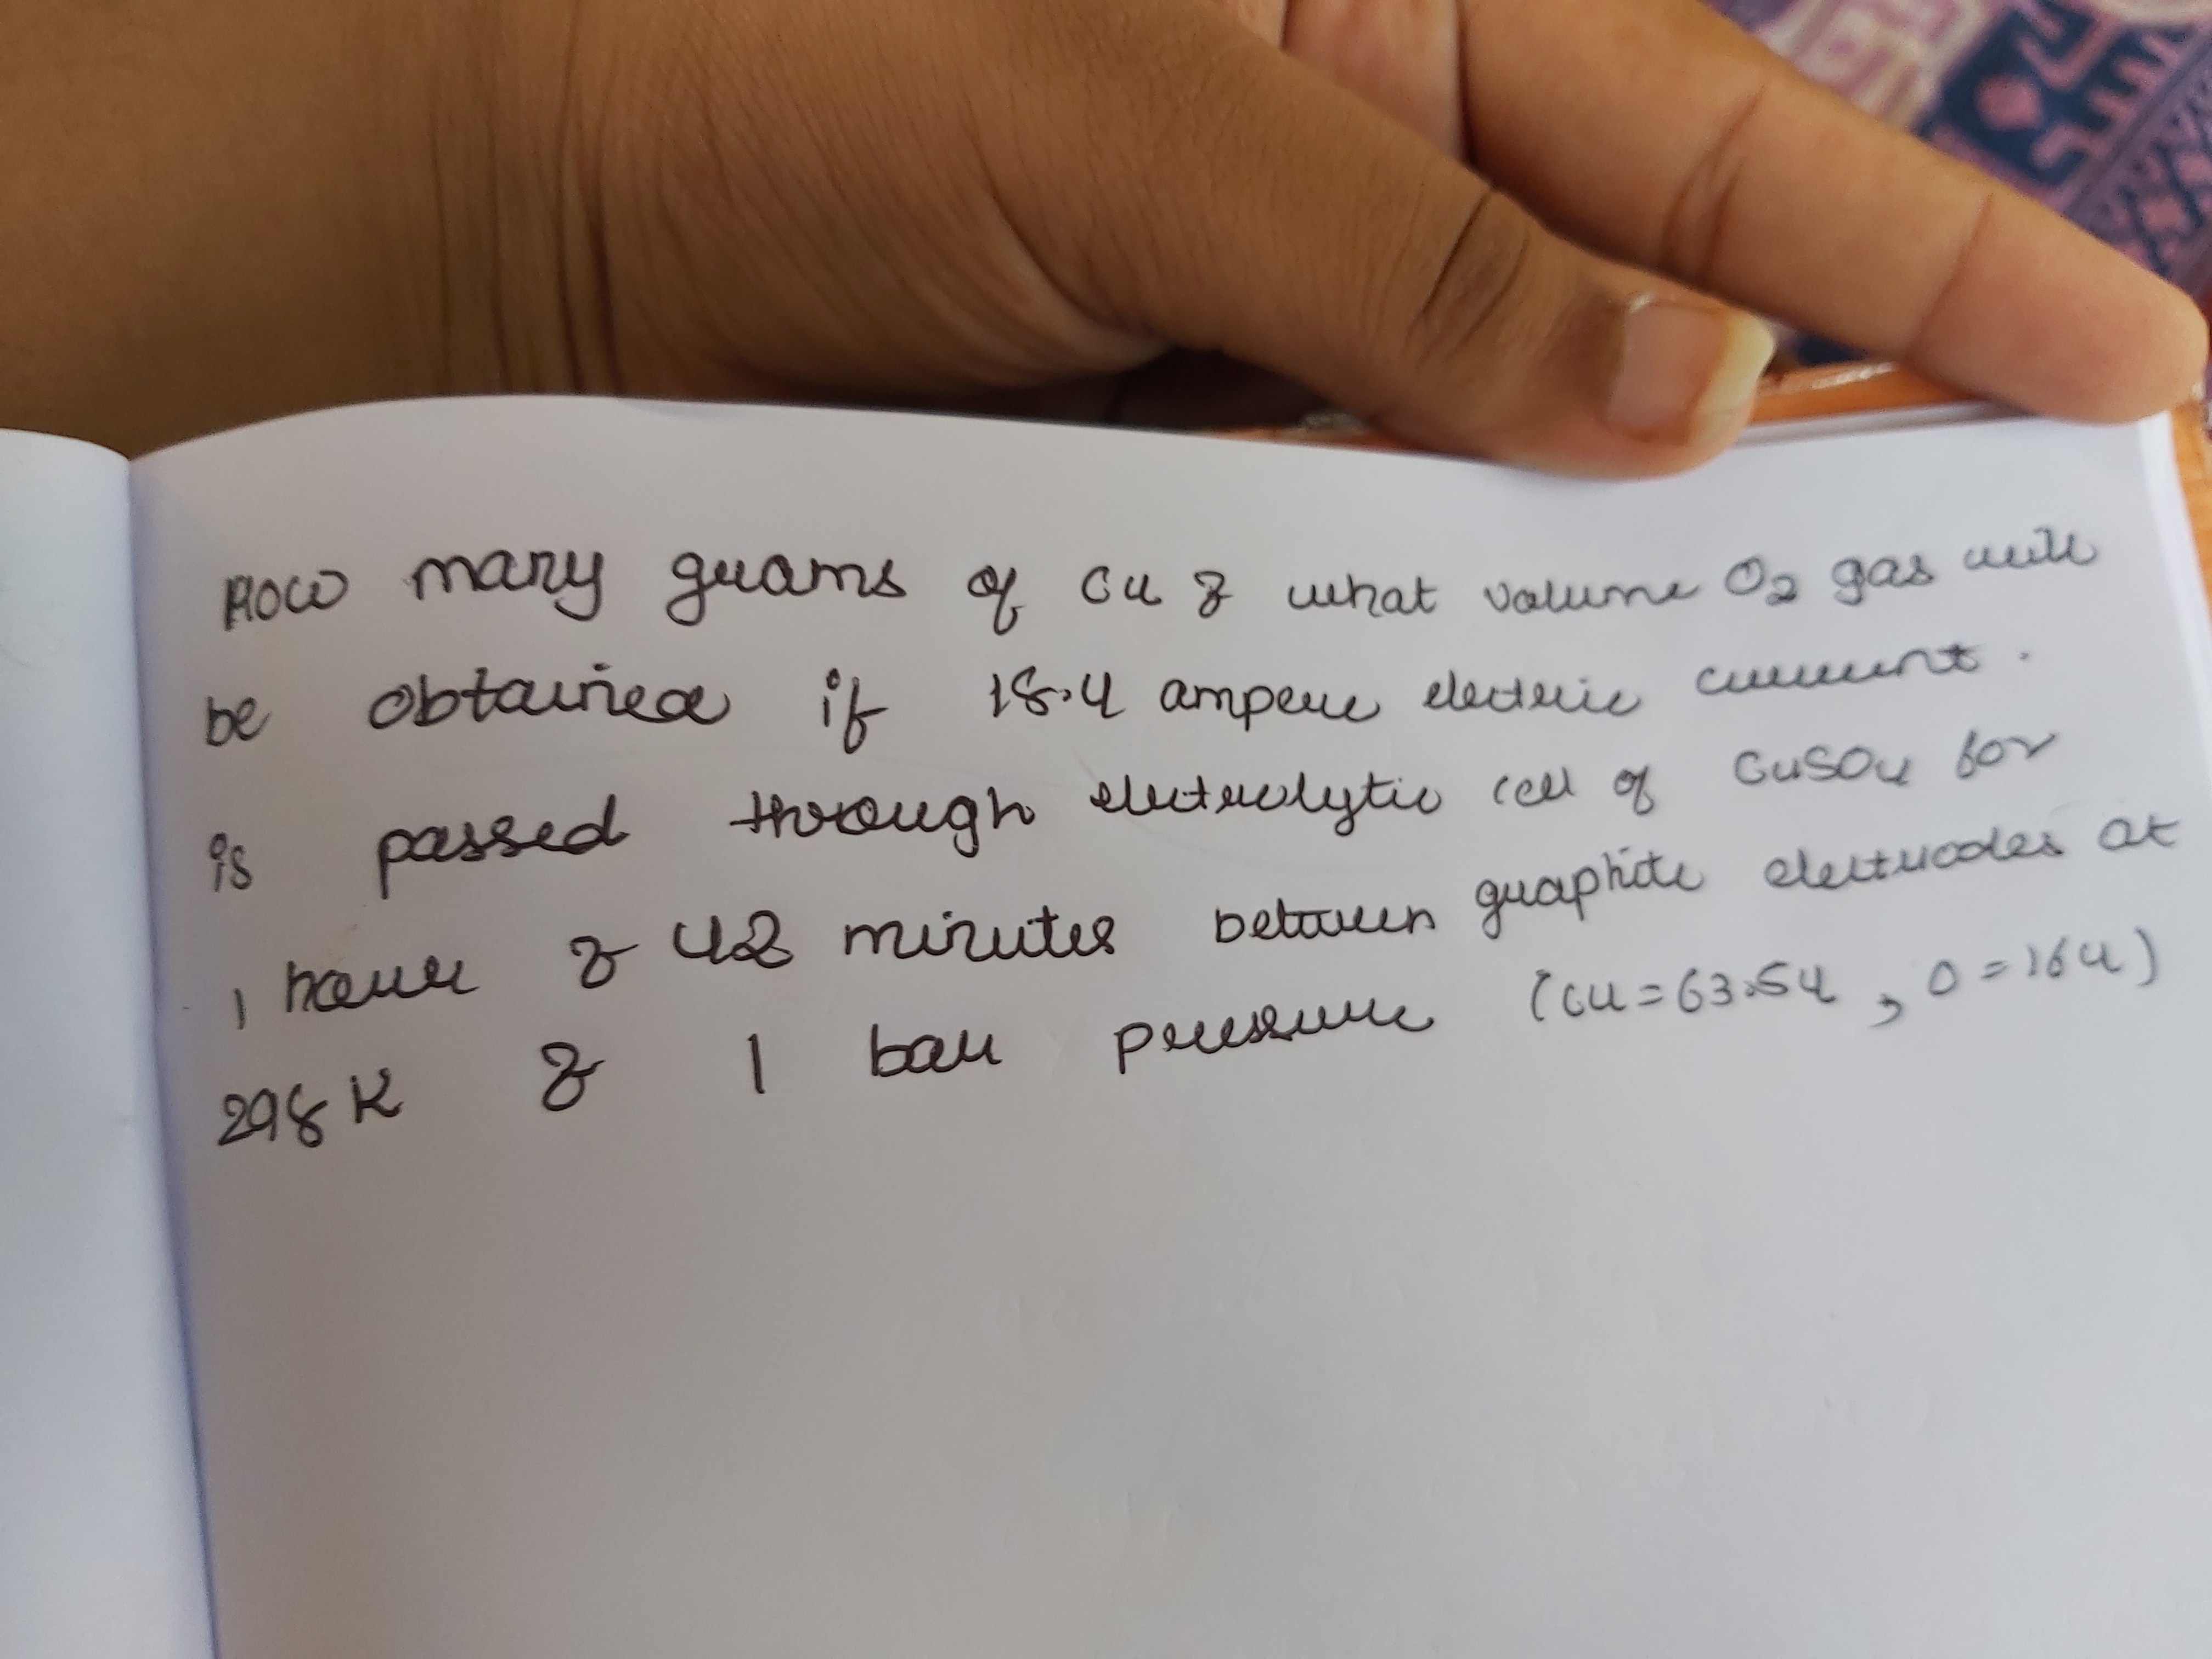 How many grams of Cu & what volume O2 gas will
be obtained if 18.4 ampere electric current.
is passed through electrolytic cell of CuSO4 for
1 hour & 42 minutes between graphite electrodes at
298 K & 1 bar pressure (Cu = 63.54, O = 16 u)